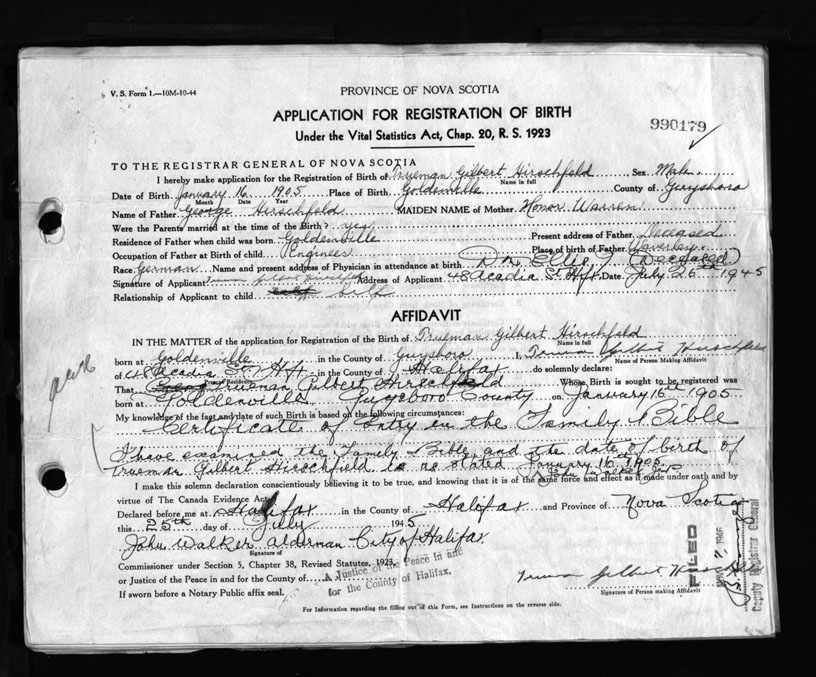 V. S. Form 1.—10M-10-44
PROVINCE OF NOVA SCOTIA
APPLICATION FOR REGISTRATION OF BIRTH
990179
Under the Vital Statistics Act, Chap. 20, R. S. 1923
TO THE REGISTRAR GENERAL OF NOVA SCOTIA
I hereby make application for the Registration of Birth of Trueman Gilbert Hirschfeld Sex Male
Name in full
Date of Birth January 16 1905 Place of Birth Goldenville County of Guysboro
Month Date Year
Name of Father George Hirschfeld MAIDEN NAME of Mother Honor Warren
Were the Parents married at the time of the Birth? yes Present address of Father Deceased
Residence of Father when child was born Goldenville Place of birth of Father Waverley
Occupation of Father at Birth of child Engineer
Race German Name and present address of Physician in attendance at birth Dr. Ellis (Deceased)
Signature of Applicant Address of Applicant 48 Acadia St. Hfx Date July 25th 1945
Relationship of Applicant to child self
AFFIDAVIT
IN THE MATTER of the application for Registration of the Birth of Trueman Gilbert Hirschfeld
Name in full
born at Goldenville in the County of Guysboro I, Truman Gilbert Hirschfeld
Name of Person Making Affidavit
of 48 Acadia St. Hfx in the County of Halifax do solemnly declare:
Residence
That Trueman Gilbert Hirschfeld Whose Birth is sought to be registered was
born at Goldenville Guysboro County on January 16th 1905
My knowledge of the fact and date of such Birth is based on the following circumstances:
Certificate of Entry in the Family Bible
I have examined the Family Bible and the date of birth of
Trueman Gilbert Hirschfeld is as stated January 16th 1905
I make this solemn declaration conscientiously believing it to be true, and knowing that it is of the same force and effect as if made under oath and by
virtue of The Canada Evidence Act.
Declared before me at Halifax in the County of Halifax and Province of Nova Scotia
this 25th day of July 1945
John Walker Alderman City of Halifax
Signature of
Commissioner under Section 5, Chapter 38, Revised Statutes, 1923,
or Justice of the Peace in and for the County of
A Justice of the Peace in and
for the County of Halifax.
If sworn before a Notary Public affix seal.
Truman Gilbert Hirschfeld
Signature of Person making Affidavit
For Information regarding the filling out of this Form, see Instructions on the reverse side.
FILED
1946
Deputy Registrar General